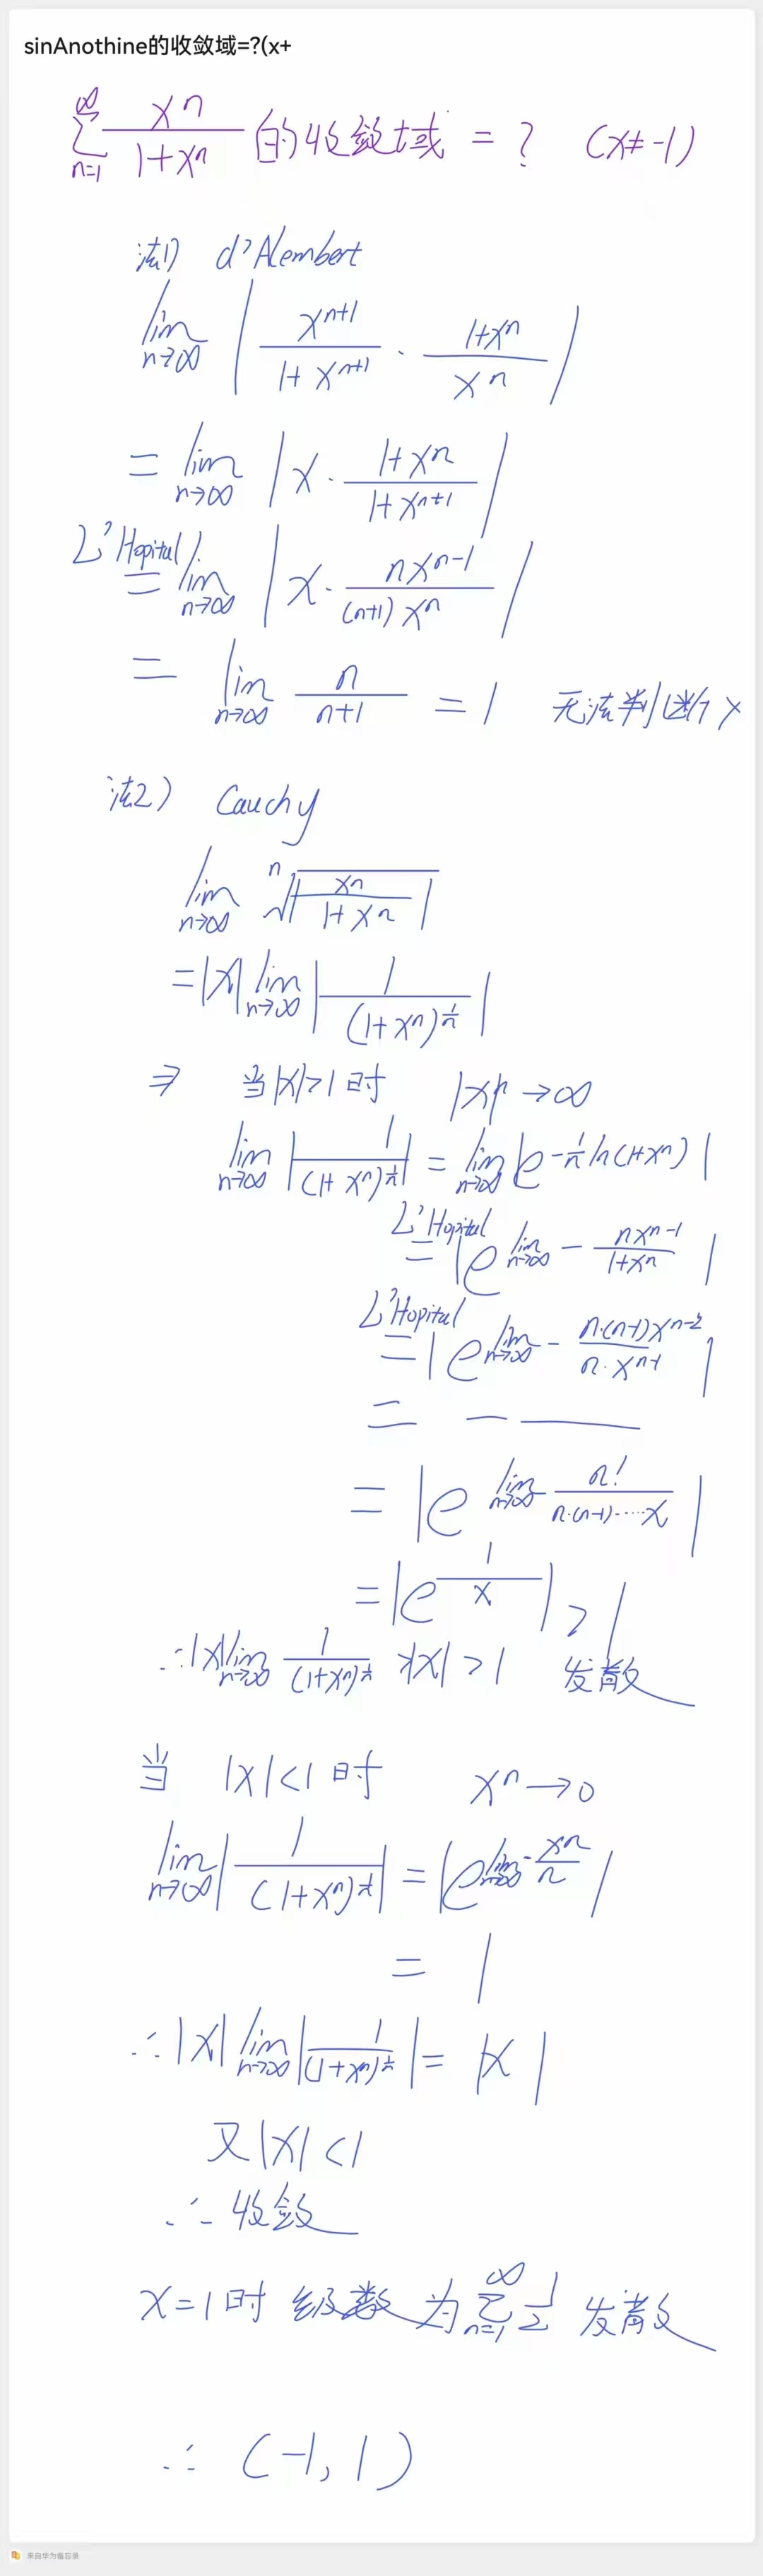 sinAnothine的收敛域=?(x+
∞∑n=1 xⁿ/(1+xⁿ) 的收敛域 = ? (x≠-1)
法1) d'Alembert
lim n→∞ | xⁿ⁺¹/(1+xⁿ⁺¹) · (1+xⁿ)/xⁿ |
= lim n→∞ | x · (1+xⁿ)/(1+xⁿ⁺¹) |
L'Hopital = lim n→∞ | x · nxⁿ⁻¹/((n+1)xⁿ) |
= lim n→∞ n/(n+1) = 1 无法判断 ×
法2) Cauchy
lim n→∞ ⁿ√|xⁿ/(1+xⁿ)|
= |x| lim n→∞ | 1/(1+xⁿ)^(1/n) |
⇒ 当|x|>1时 |x|ⁿ→∞
lim n→∞ | 1/(1+xⁿ)^(1/n) | = lim n→∞ | e^(-1/n ln(1+xⁿ)) |
L'Hopital = | e^(lim n→∞ - nxⁿ⁻¹/(1+xⁿ)) |
L'Hopital = | e^(lim n→∞ - n·(n-1)xⁿ⁻²/(n·xⁿ⁻¹)) |
= — ———
= | e^(lim n→∞ n!/(n·(n-1)·····x)) |
= | e^(1/x) | > 1
∴ |x| lim n→∞ 1/(1+xⁿ)^(1/n) *|x| > 1 发散
当 |x|<1时 xⁿ→0
lim n→∞ | 1/(1+xⁿ)^(1/n) | = | e^(lim n→∞ - xⁿ/n) |
= 1
∴ |x| lim n→∞ | 1/(1+xⁿ)^(1/n) | = |x|
又|x|<1
∴ 收敛
x=1时 级数为 ∞∑n=1 1/2 发散
∴ (-1,1)
来自华为备忘录